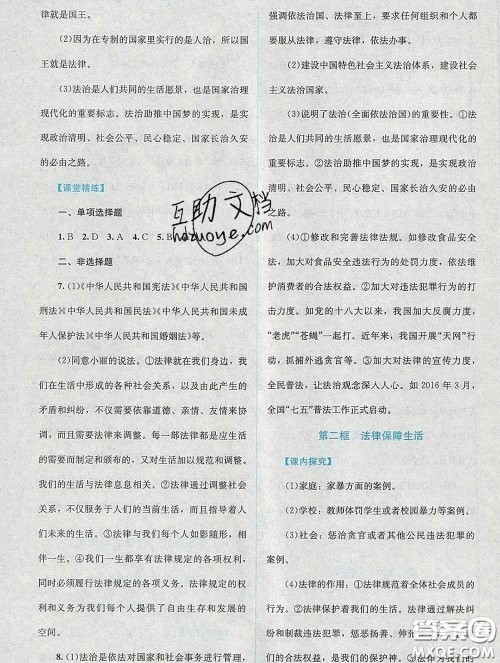 律就是国王。
(2)因为在专制的国家里实行的是人治，所以国
王就是法律。
(3)法治是人们共同的生活愿景，也是国家治理
现代化的重要标志。法治助推中国梦的实现，是实
现政治清明、社会公平、民心稳定、国家长治久安的
必由之路。
【课堂精练】
一、单项选择题
1.B 2.D 3.A 4.C 5.B
二、非选择题
7.(1)《中华人民共和国宪法》《中华人民共和国
刑法》《中华人民共和国》《中华人民共和国未成
年人保护法》《中华人民共和国婚姻法》等。
(2)同意小丽的说法。①法律就在我们身边，我们
在生活中形成的各种社会关系，以及由此产生的
矛盾和纠纷，不仅需要依靠道德、亲情、友情来协
调，而且需要法律来调整。每一部法律都是应生活
的需要而制定和颁布的，又对生活加以规范和调整。
②法律与我们的生活息息相关。③法律通过调整社会关系
不仅服务于人们的当前的生活，而且指导着人
们未来的生活。④法律与我们每个人如影随形，相
伴一生。④我们一生都享有法律规定的各项权利，
同时必须履行法律规定的各项义务。法律赋予的权利
和义务为我们每个人提供了自由生存和发展的
空间。
8.(1)法治是依法对国家和社会事务进行管理，
强调依法治国、法律至上，要求任何组织和个人都
要服从法律，遵守法律，依法办事。
(2)建设中国特色社会主义法治体系，建设社会
主义法治国家。
(3)说明了法治(全面依法治国)的重要性。①法
治是人们共同的生活愿景，也是国家治理现代化的
重要标志。②法治助推中国梦的实现，是实现政治
清明、社会公平、民心稳定、国家长治久安的必由之
路。
(4)①修改和完善法律法规。如修改食品安全
法，加大对食品安全违法行为的处罚力度，依法维
护消费者的合法权益。②加大对违法犯罪行为的打
击力度。如党的十八大以来，我国加大反腐力度，
“老虎”“苍蝇”一起打。近年来，我国开展“天网”行
动，抓捕外逃贪官。③加大对法律的宣传力度，
全民普法，让法治观念深入人心。如 2016 年 3 月，
全国“七五”普法工作正式启动。
第二框 法律保障生活
【课内探究】
(1)家庭：家暴方面的案例。
(2)学校：教师体罚学生或者校园暴力等案例。
(3)社会：惩治贪官或者其他公民违法犯罪的
案例。
(4)法律的作用：①法律规范全体社会成员的
行为。②法律通过解决
纠纷和制裁违法犯罪，惩恶扬善、伸张
互助文档
hdzuoye.com
答案圈
MXQE.COM